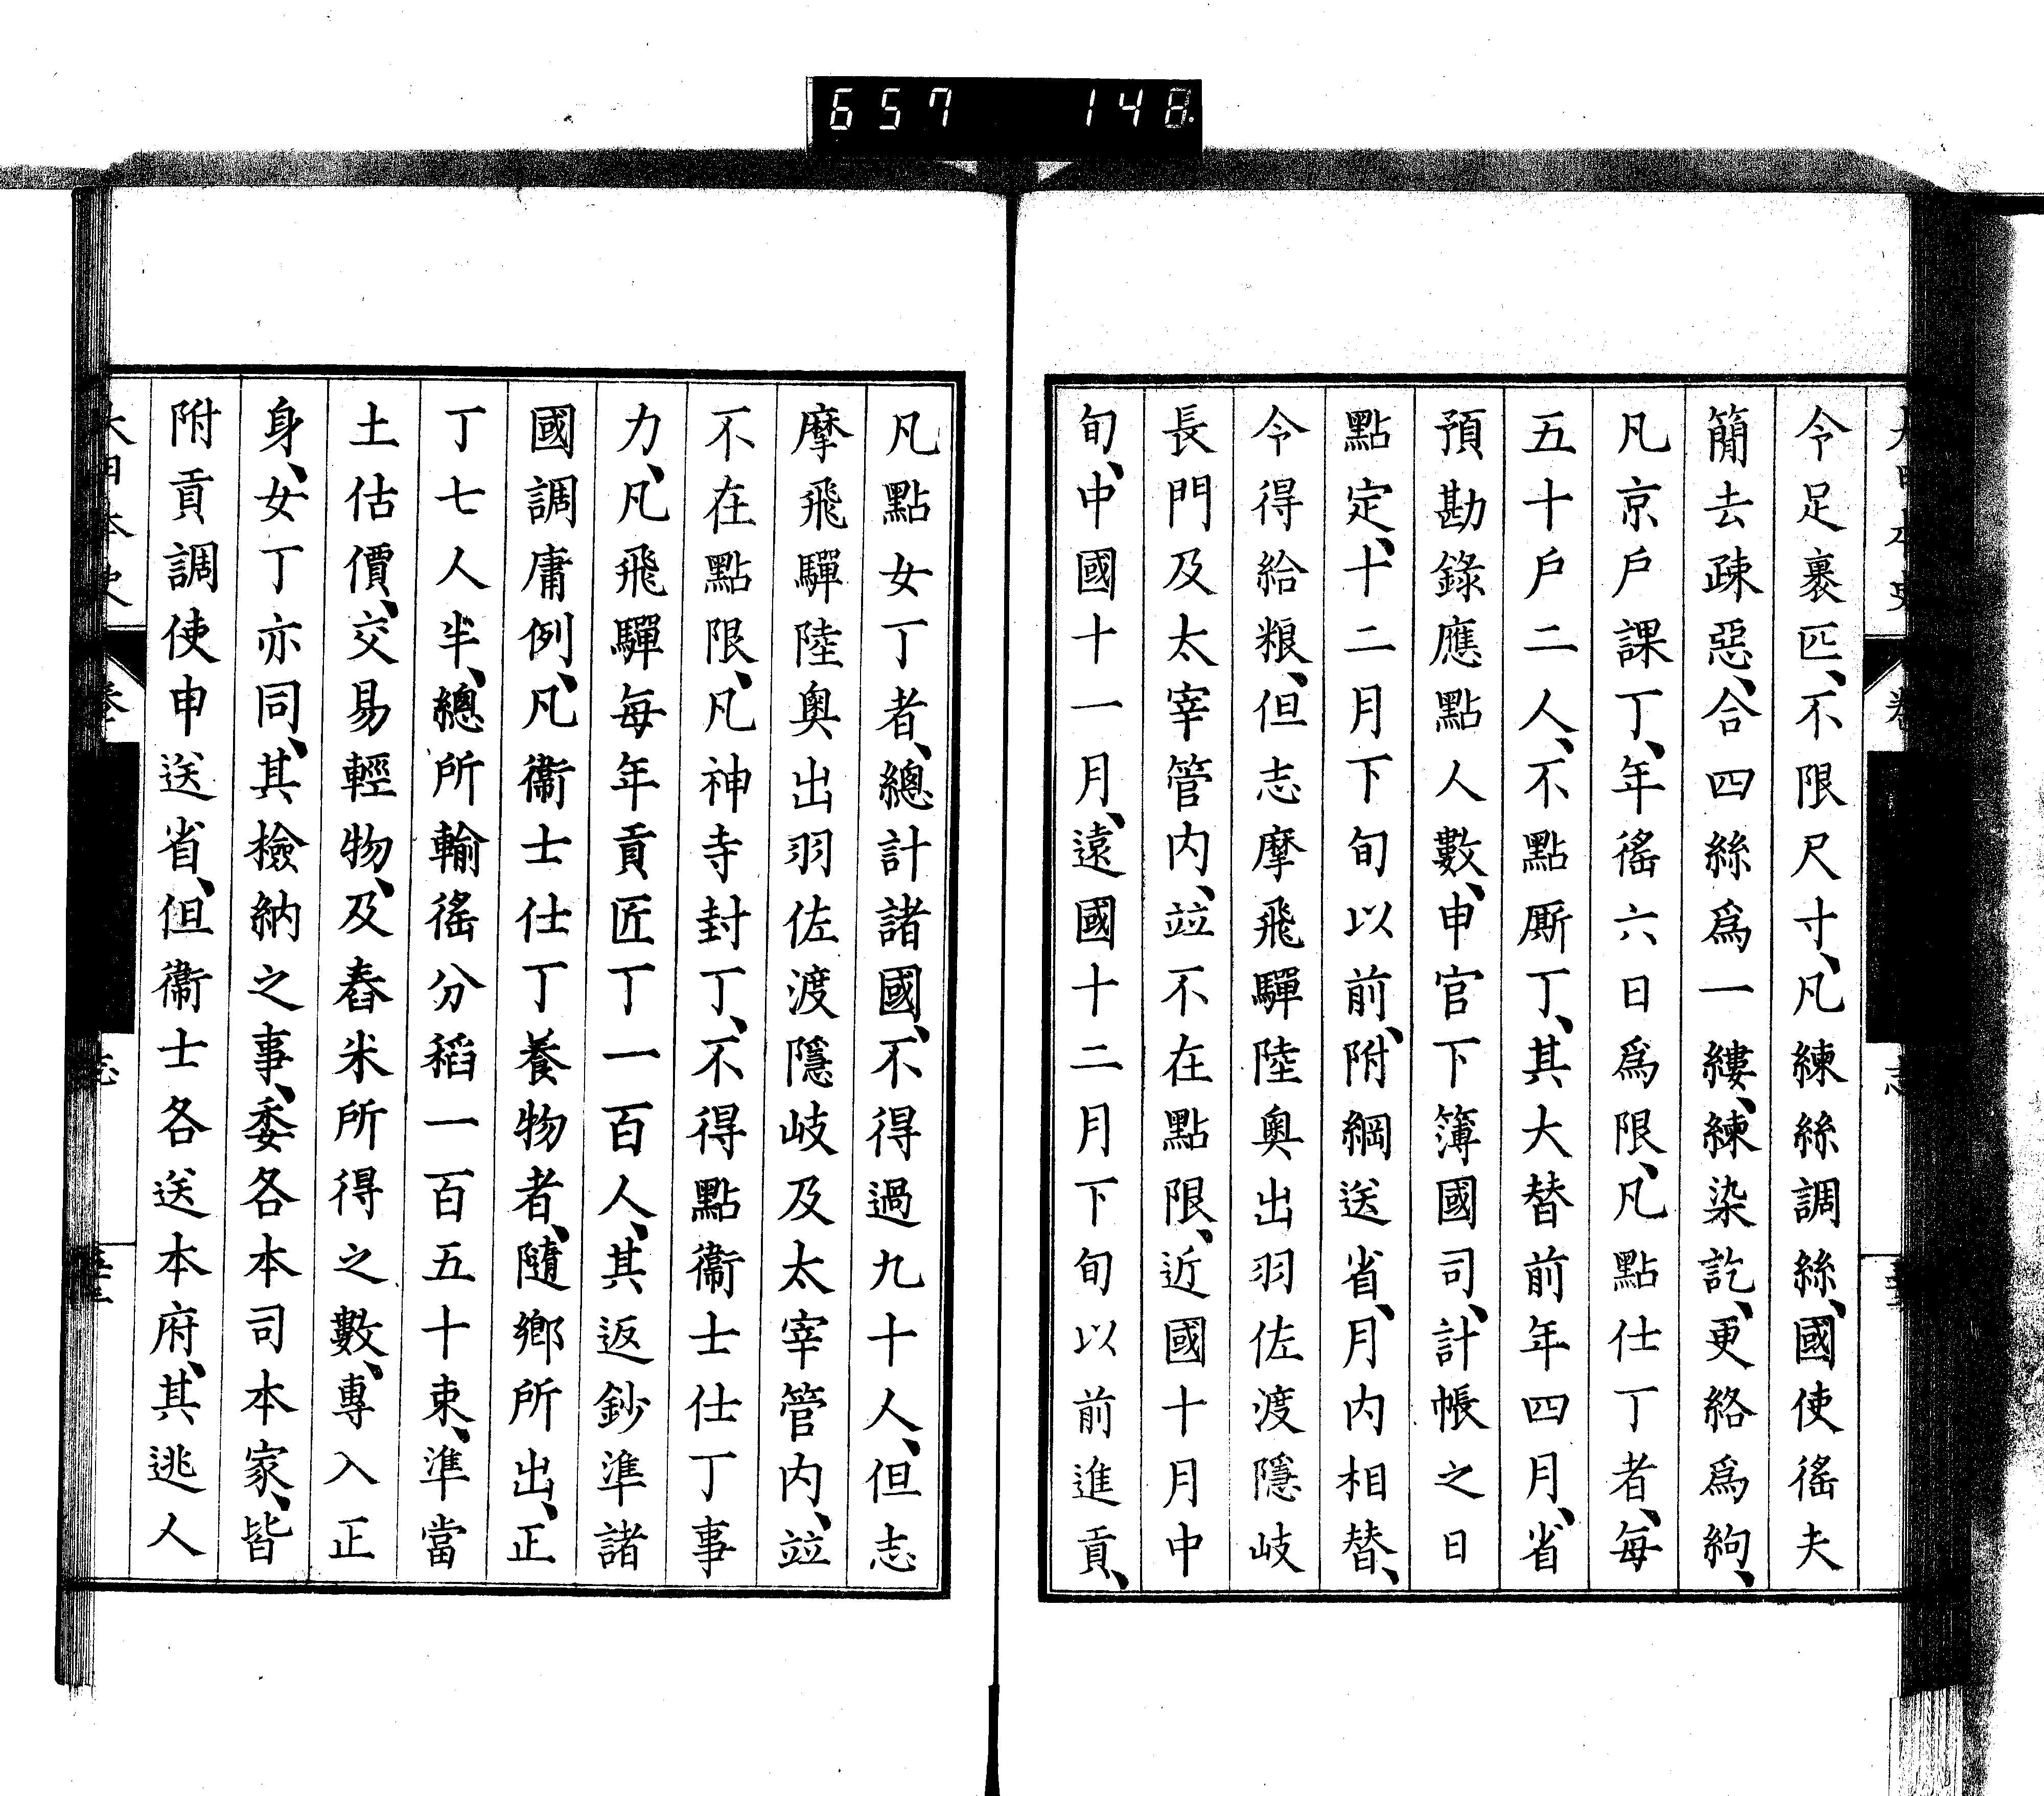 657 148
令足裹匹、不限尺寸、凡練絲調絲、國使徭夫
簡去疎惡、合四絲爲一縷、練染訖、更絡爲絇、
凡京戶課丁、年徭六日爲限、凡點仕丁者、每
五十戶二人、不點厮丁、其大替前年四月、省
預勘錄應點人數、申官下簿國司、計帳之日
點定、十二月下旬以前、附綱送省、月內相替、
令得給粮、但志摩飛驒陸奧出羽佐渡隱岐
長門及太宰管内、竝不在點限、近國十月中
旬、中國十一月、遠國十二月下旬以前進貢、
凡點女丁者、總計諸國、不得過九十人、但志
摩飛驒陸奧出羽佐渡隱岐及太宰管内、竝
不在點限、凡神寺封丁、不得點衞士仕丁事
力、凡飛驒每年貢匠丁一百人、其返鈔準諸
國調庸例、凡衞士仕丁養物者、隨鄉所出、正
丁七人半、總所輸徭分稻一百五十束、準當
土估價、交易輕物、及舂米所得之數、專入正
身、女丁亦同、其檢納之事、委各本司本家、皆
附貢調使申送省、但衞士各送本府、其逃人
大日本史 志